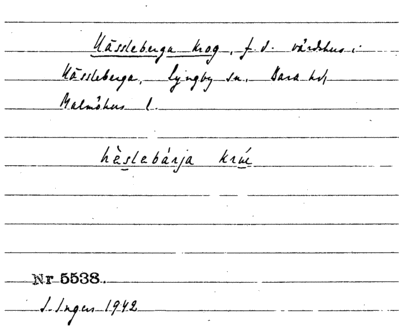 Hässleberga krog, f. d. värdshus i
Hässleberga, Lyngby sn, Bara hd,
Malmöhus l.
hèslebárja krú
Nr 5538.
S. Ingers 1942